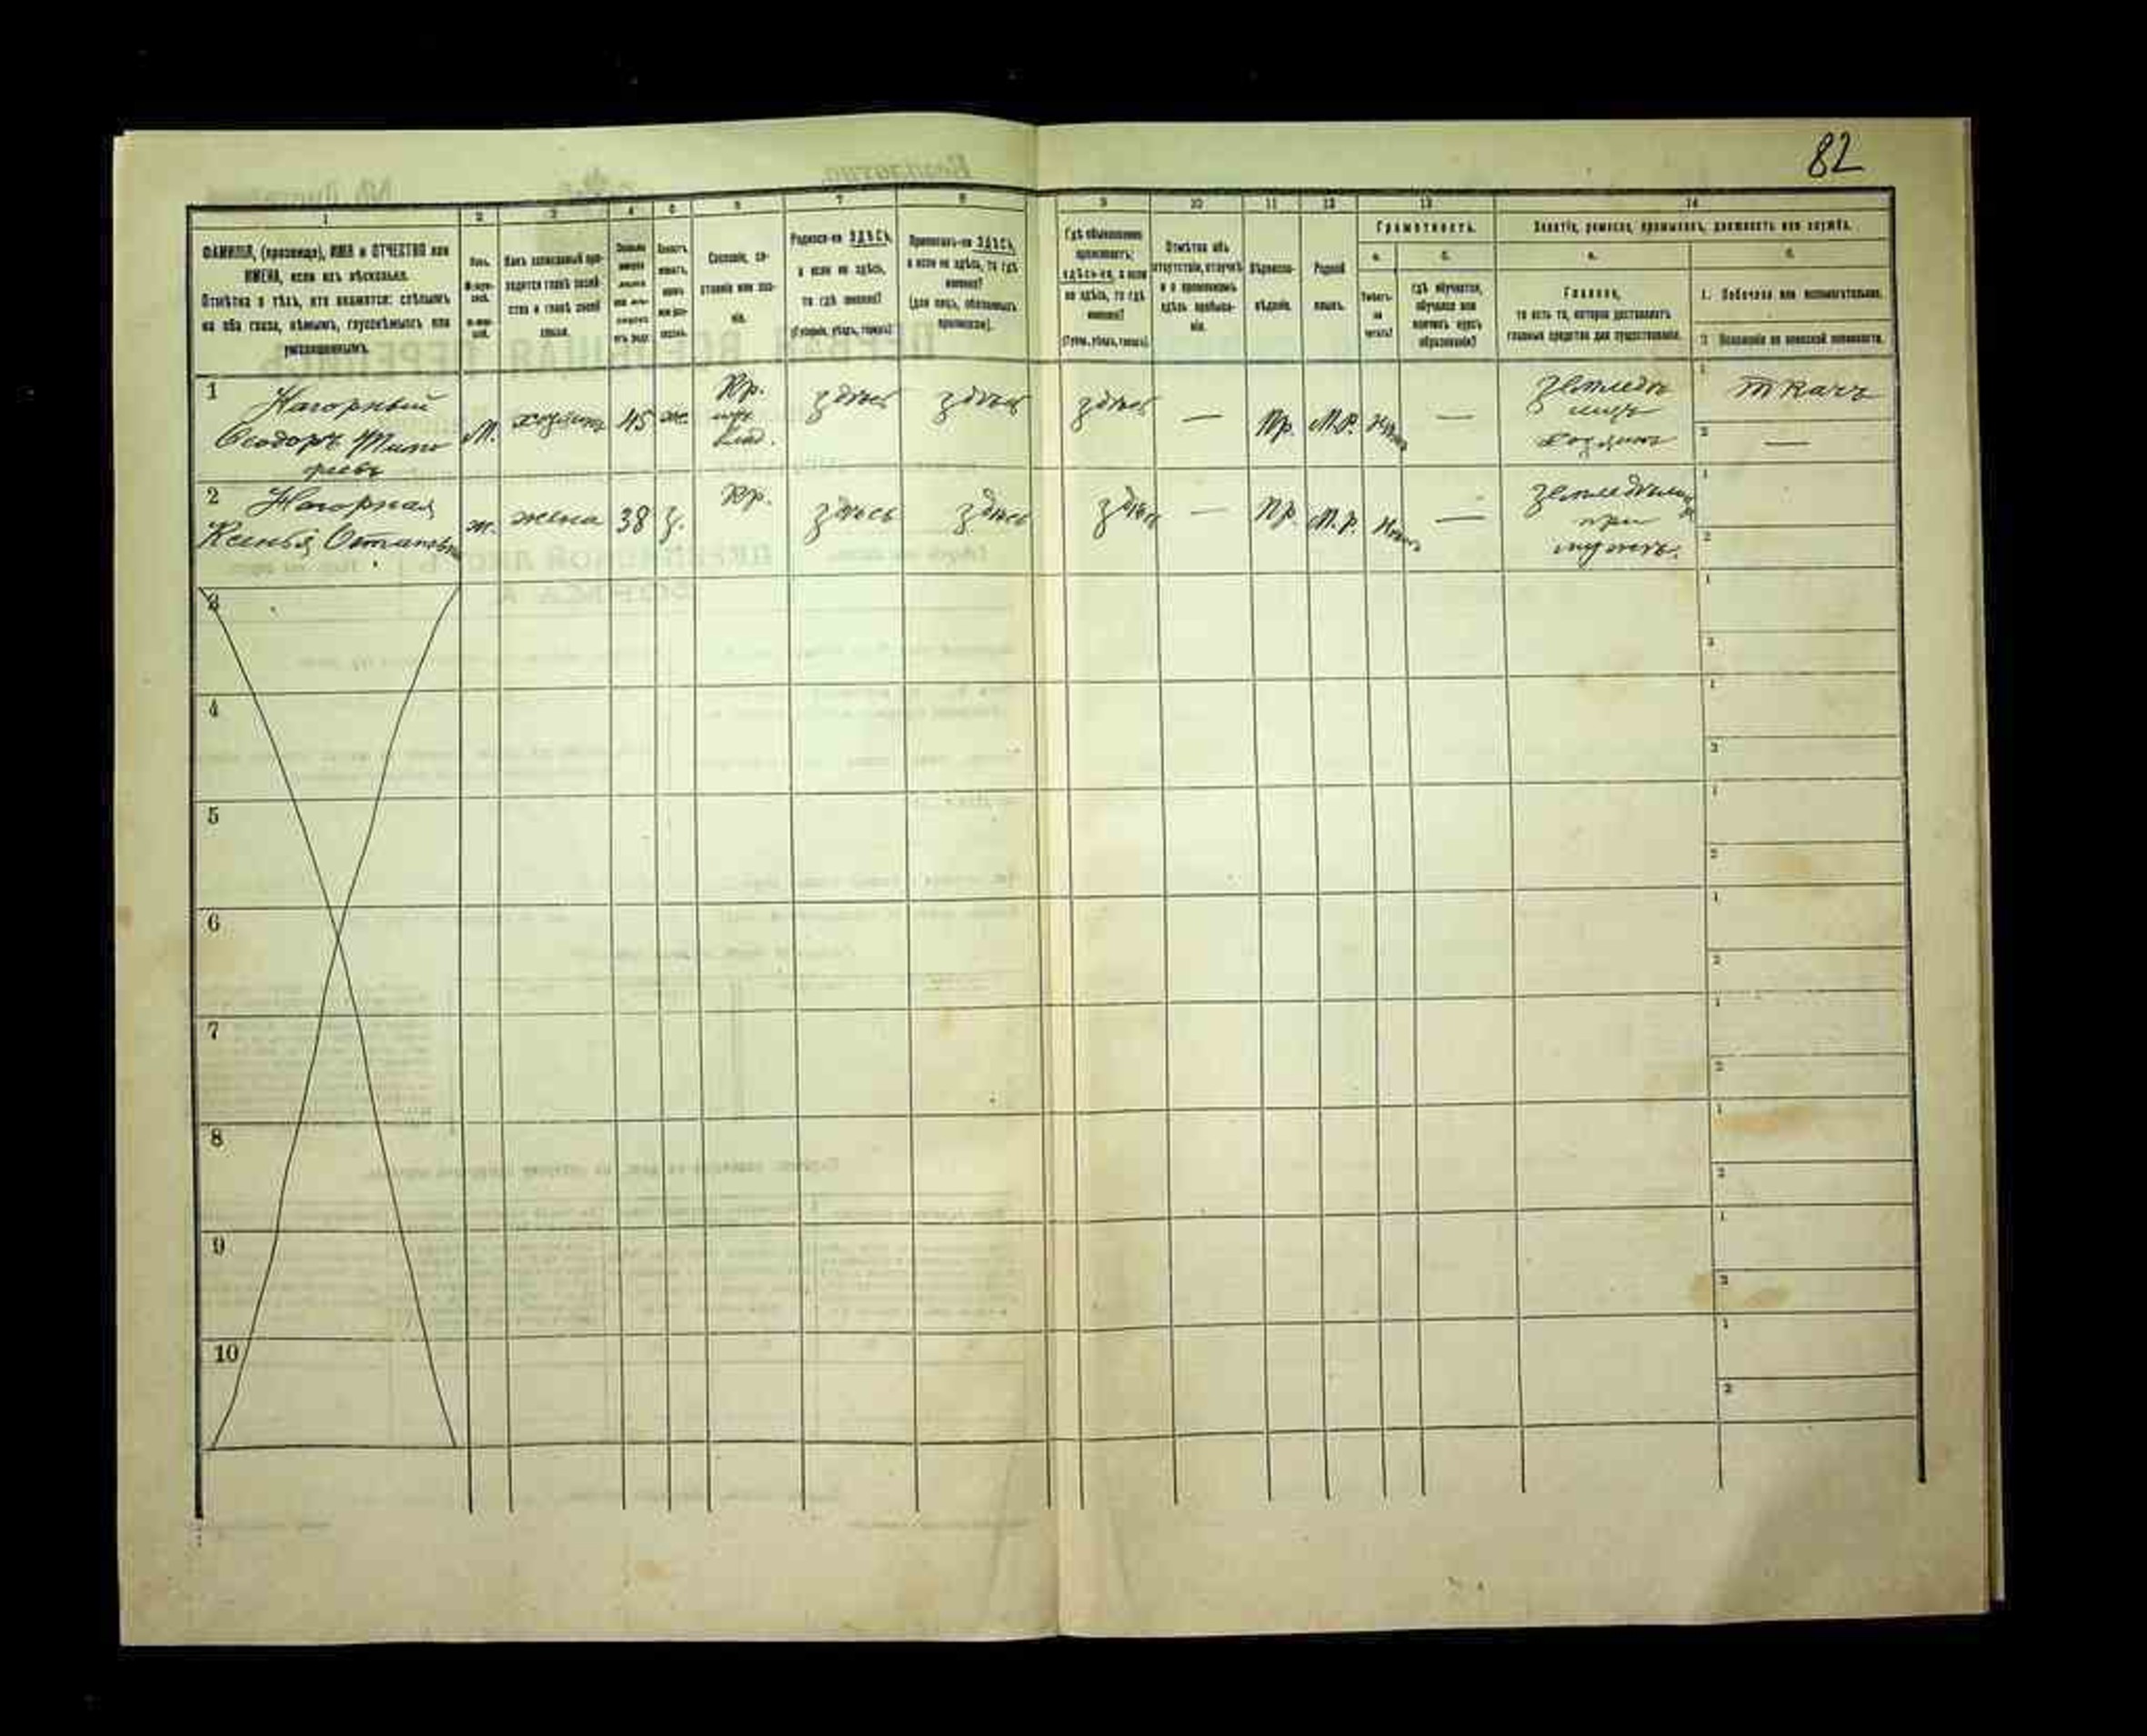 82
1
2
3
4
5
6
7
8
9
10
11
12
13
14
ФАМИЛІЯ, (прозвище), ИМЯ и ОТЧЕСТВО или
ИМЕНА, если ихъ нѣсколько.
Отмѣтка о тѣхъ, кто окажется: слѣпымъ
на оба глаза, нѣмымъ, глухонѣмымъ или
умалишеннымъ.
Полъ.
Какъ записанный при-
ходится главѣ хозяй-
ства и главѣ своей
семьи.
Сословіе, со-
стояніе или зва-
ніе.
Родился-ли ЗДѢСЬ,
а если не здѣсь,
то гдѣ именно?
(Губернія, уѣздъ, городъ)
Приписанъ-ли ЗДѢСЬ,
а если не здѣсь, то гдѣ
именно?
(для лицъ, обязанныхъ
припиской).
Гдѣ обыкновенно
проживаетъ:
здѣсь-ли, а если
не здѣсь, то гдѣ
именно?
(Губ., уѣздъ, городъ)
Отмѣтка объ
отсутствіи, отлучкѣ
и о временномъ
здѣсь пребыва-
ніи.
Вѣроиспо-
вѣданіе.
Родной
языкъ.
Грамотность.
а.
Умѣетъ-
ли
читать?
б.
гдѣ обучается,
обучался или
кончилъ курсъ
образованія?
Занятіе, ремесло, промыселъ, должность или служба.
а.
Главное,
то есть то, которое доставляетъ
главныя средства для существованія.
б.
1. Побочное или вспомогательное.
2. Положеніе по воинской повинности.
1
Нагорный
Ѳеодоръ Тимо
феевъ
М.
хозяинъ
45
ж.
Кр.
здѣсь
здѣсь
здѣсь
—
Пр.
М.Р.
—
хозяинъ
1
ткачъ
2
—
2
Нагорная
Ксенья Остаповна
ж.
жена
38
з.
Кр.
здѣсь
здѣсь
здѣсь
—
Пр.
М.р.
—
при
мужѣ.
1
2
3
1
2
4
1
2
5
1
2
6
1
2
7
1
2
8
1
2
9
1
2
10
1
2